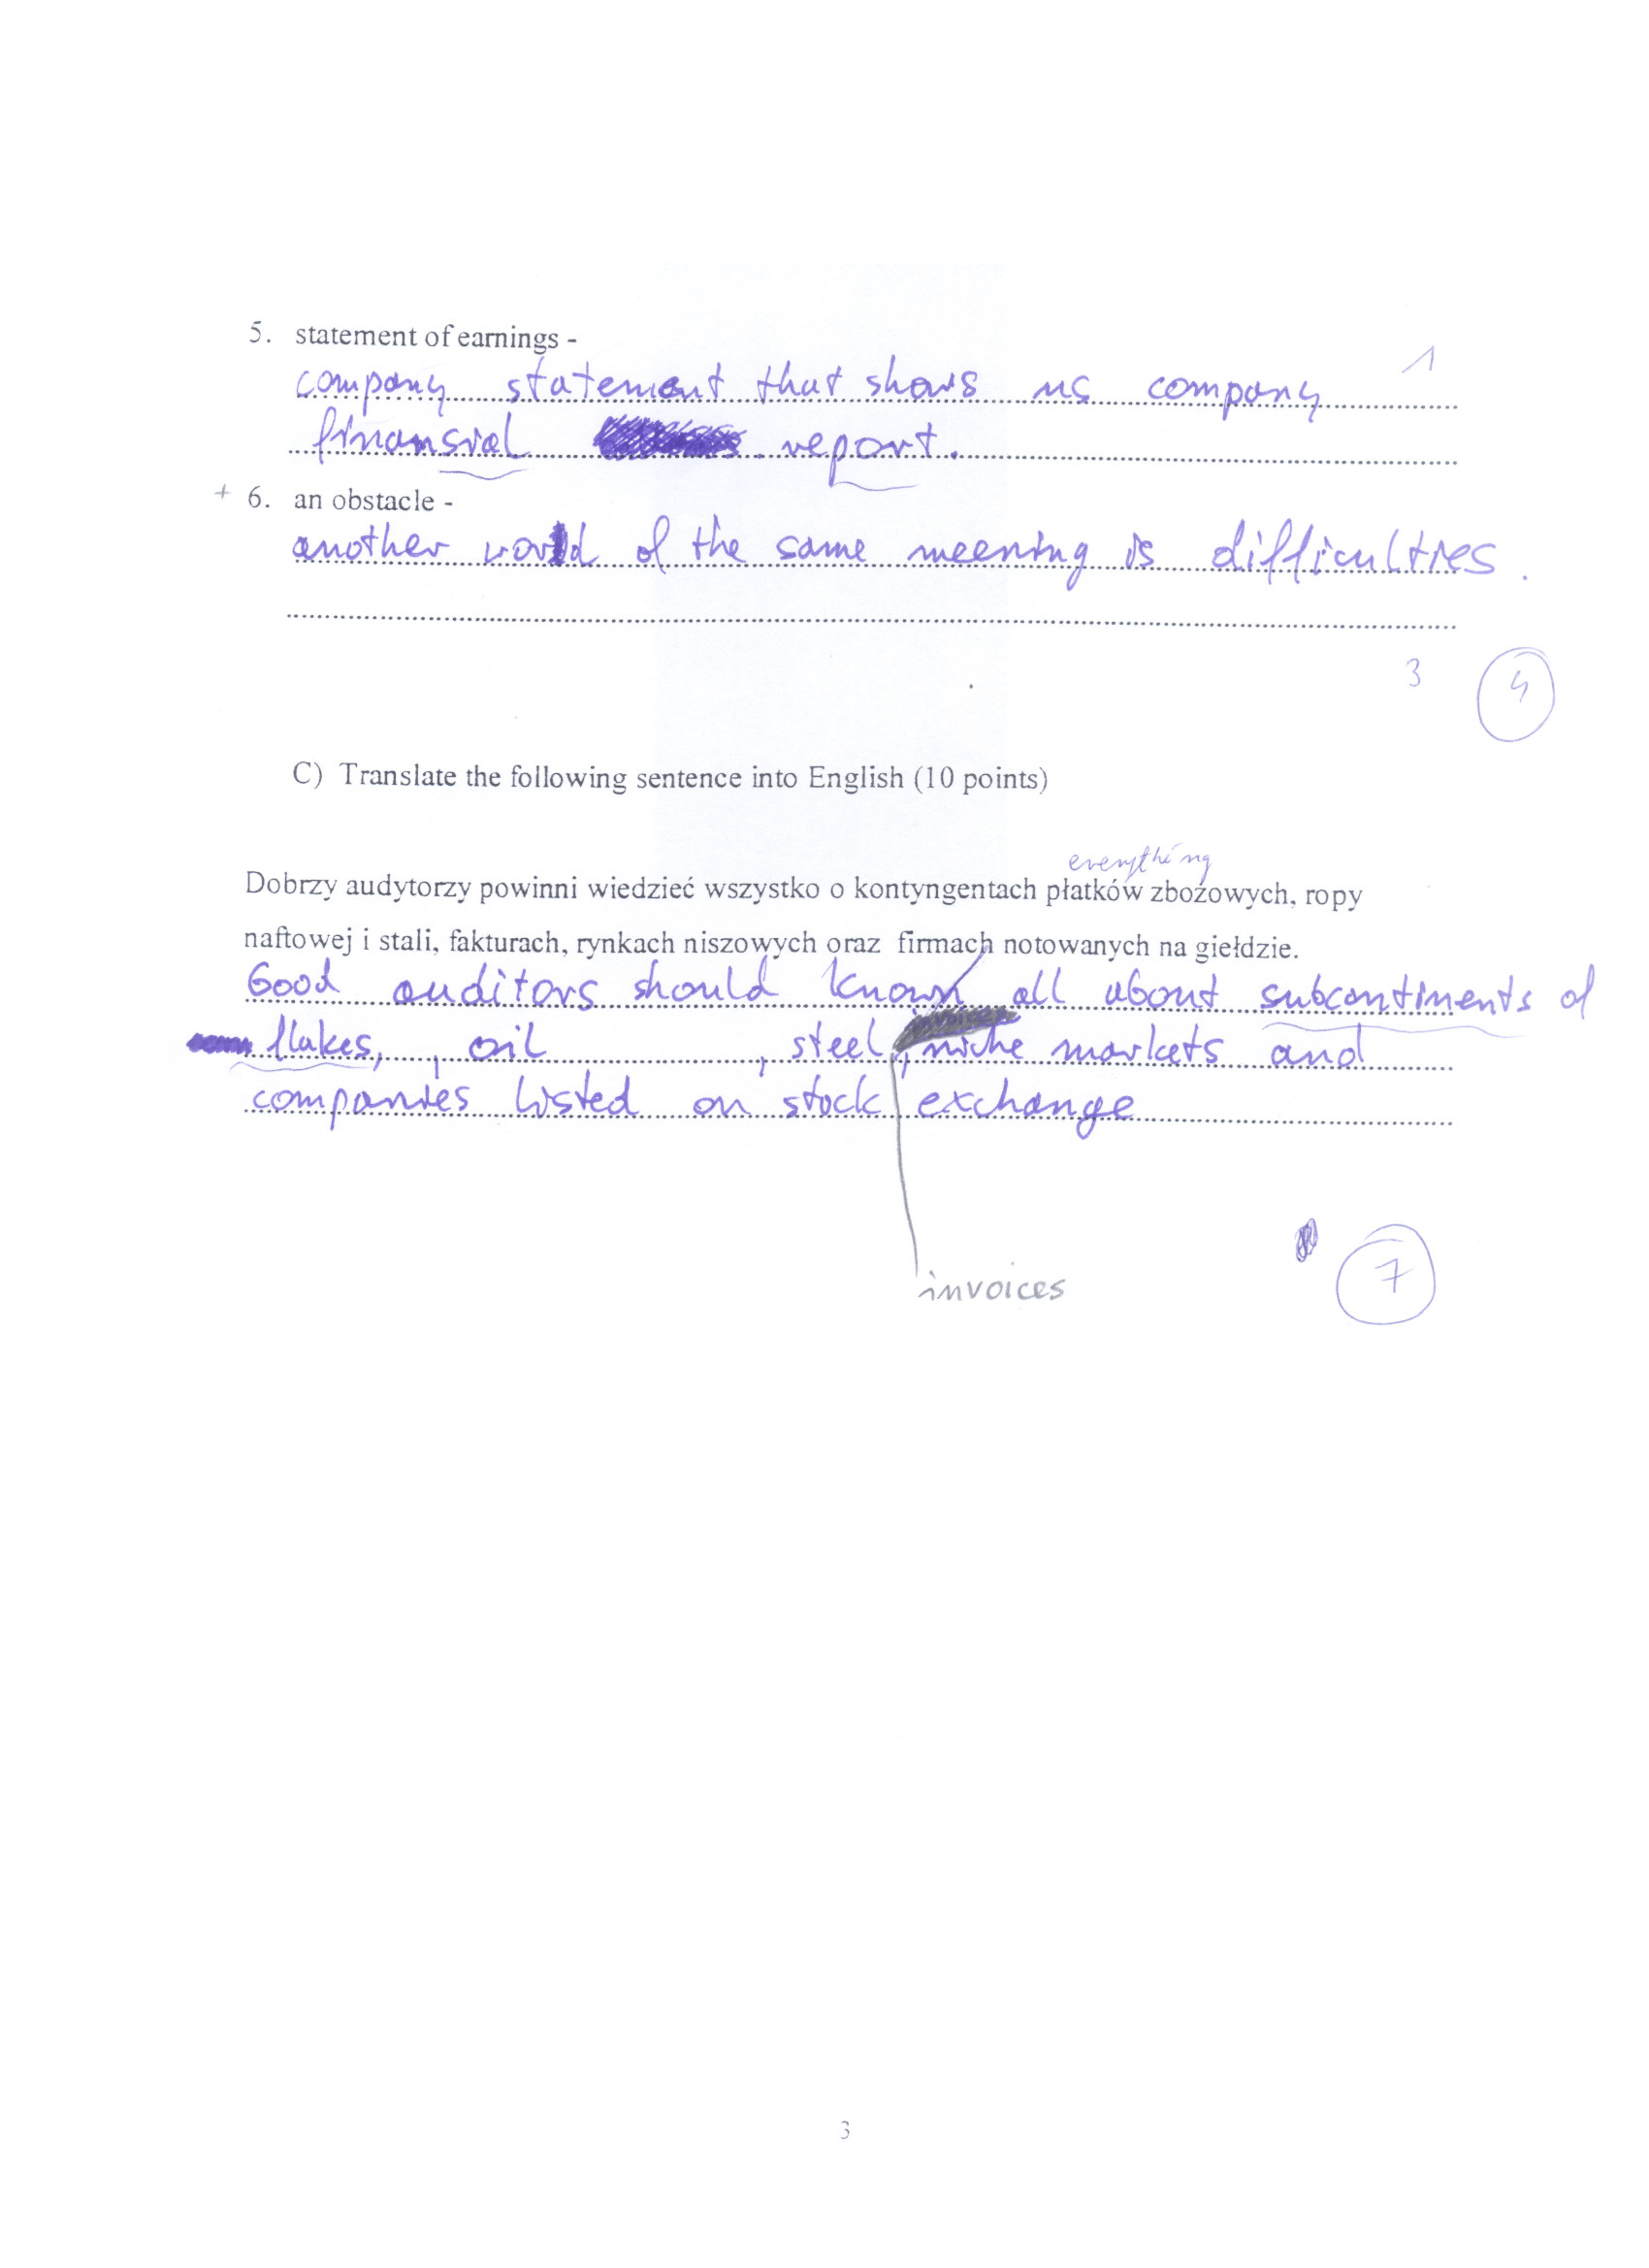 5. statement of earnings -
1
company statement that shows us company
finansial report.
+ 6. an obstacle -
another world of the same meening is difficulties.
3 4
C) Translate the following sentence into English (10 points)
everything
Dobrzy audytorzy powinni wiedzieć wszystko o kontyngentach płatków zbożowych, ropy
naftowej i stali, fakturach, rynkach niszowych oraz firmach notowanych na giełdzie.
Good auditors should known all about subcontinents of
flakes, , oil , steel, niche markets and
companies listed on stock exchange
invoices
7
3